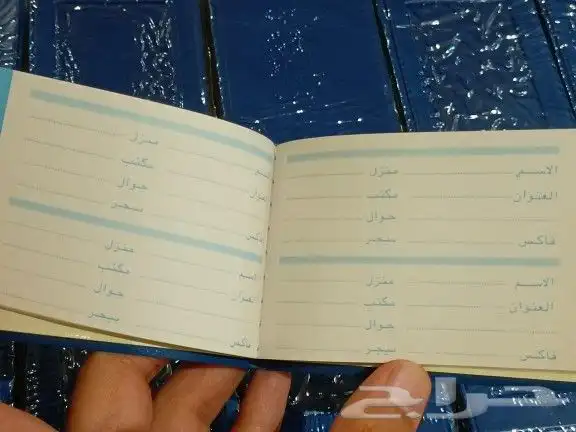 الاسم منزل
العنوان مكتب
جوال
فاكس بيجر
الاسم منزل
العنوان مكتب
جوال
فاكس بيجر
الاسم منزل
العنوان مكتب
جوال
فاكس بيجر
الاسم منزل
العنوان مكتب
جوال
فاكس بيجر
حراج